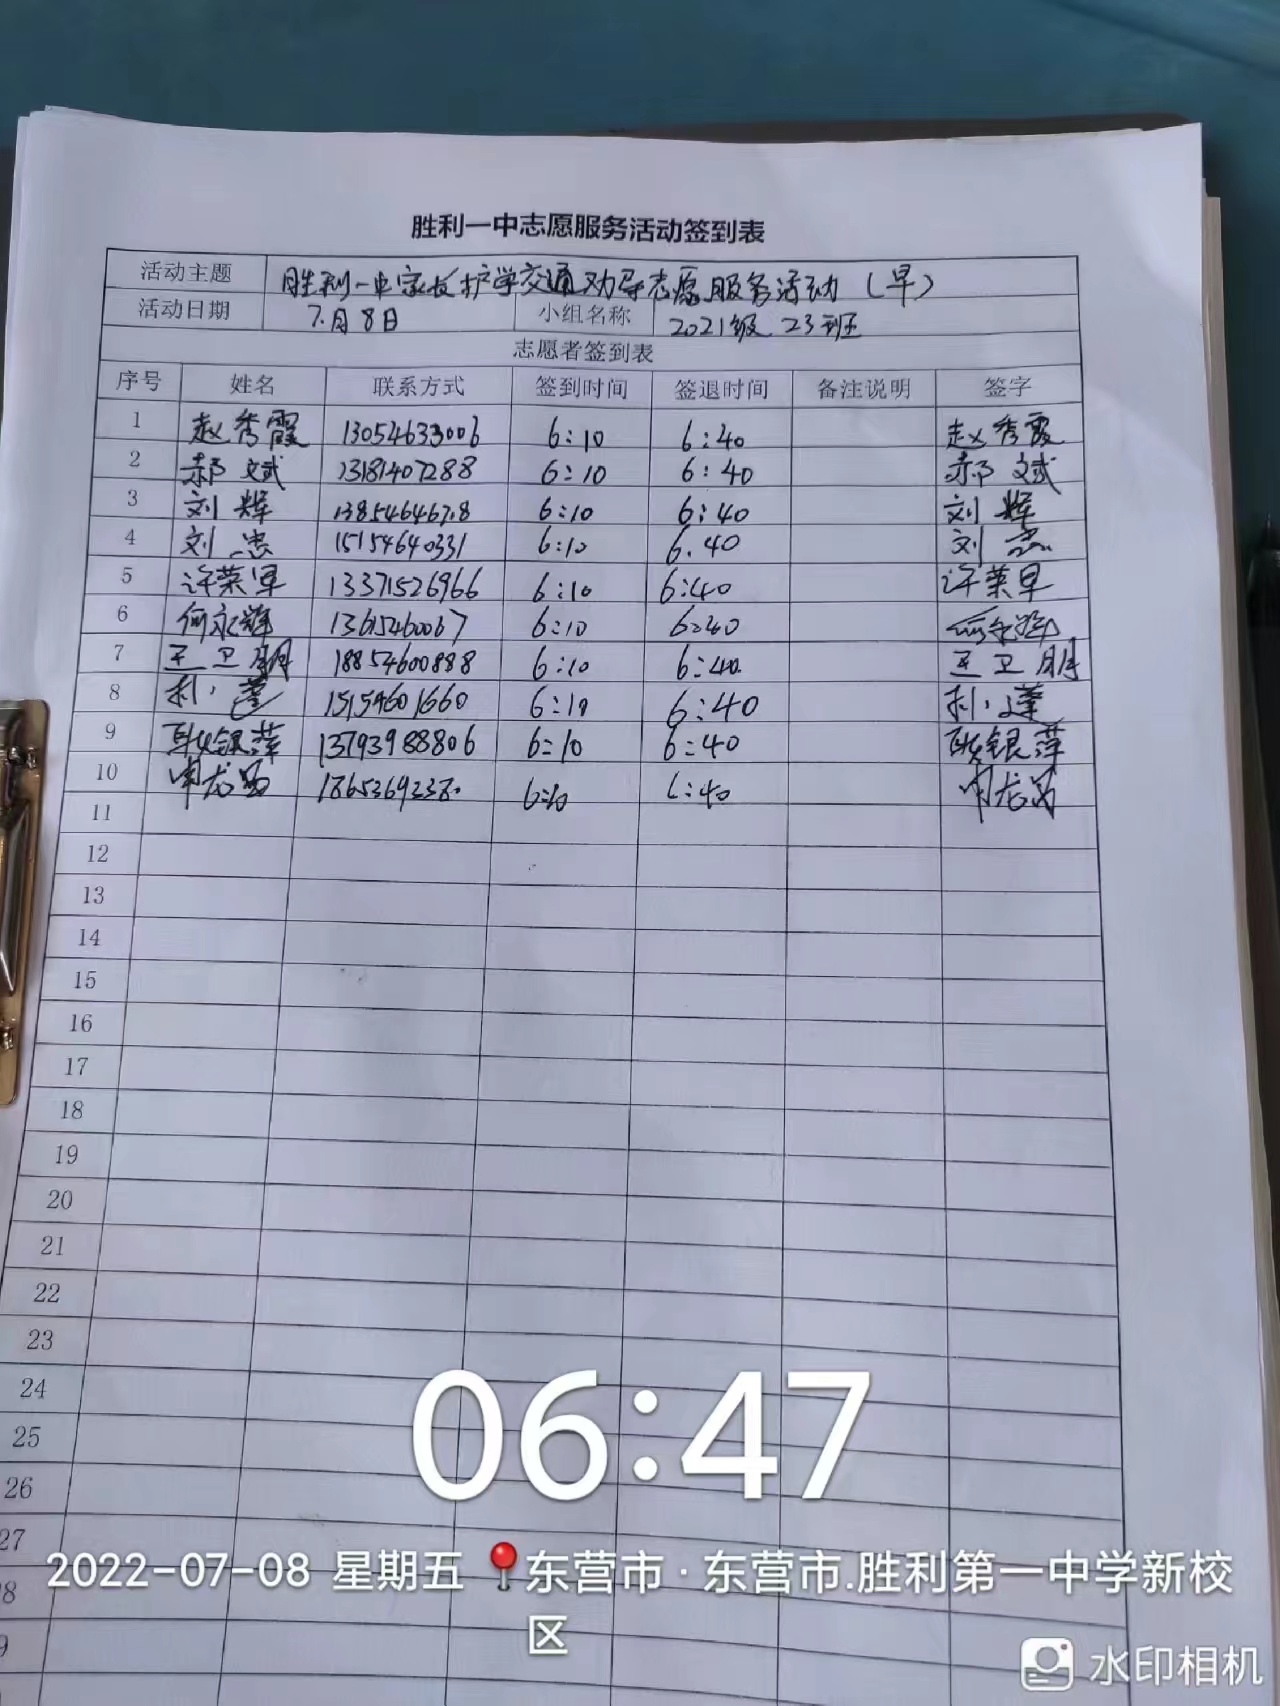 胜利一中志愿服务活动签到表
活动主题 胜利一中家长护学交通劝导志愿服务活动（早）
活动日期 7月8日 小组名称 2021级 23班
志愿者签到表
序号 姓名 联系方式 签到时间 签退时间 备注说明 签字
1 赵秀霞 13054633006 6:10 6:40 赵秀霞
2 郝斌 13181407288 6:10 6:40 郝斌
3 刘辉 6:10 6:40 刘辉
4 刘忠 15154640331 6:10 6.40 刘忠
5 许荣军 13371526966 6:10 6:40 许荣军
6 何永辉 13615460067 6:10 6:40
7 王卫朋 18854600888 6:10 6:40 王卫朋
8 15154601660 6:10 6:40
9 耿银萍 13793988806 6:10 6:40 耿银萍
10 6:10 6:40
11
12
13
14
15
16
17
18
19
20
21
22
23
24
25
26
27
8
9
06:47
2022-07-08 星期五 东营市·东营市.胜利第一中学新校
区
水印相机